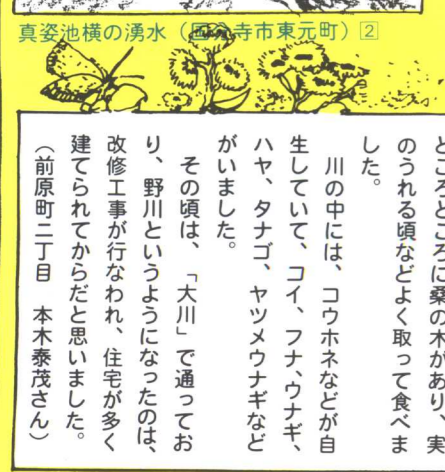 真姿池横の湧水（国分寺市東元町）②
ところどころに桑の木があり、実
のうれる頃などよく取って食べま
した。
川の中には、コウホネなどが自
生していて、コイ、フナ、ウナギ、
ハヤ、タナゴ、ヤツメウナギなど
がいました。
その頃は、「大川」で通ってお
り、野川というようになったのは、
改修工事が行なわれ、住宅が多く
建てられてからだと思いました。
（前原町二丁目　本木泰茂さん）